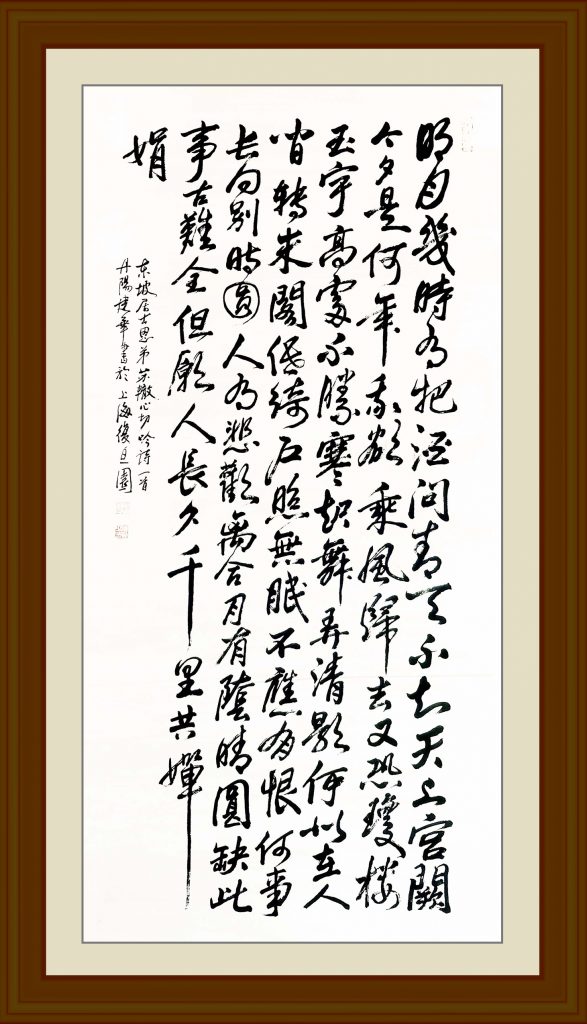 明月幾時有把酒問青天不知天上宮闕
今夕是何年我欲乘風歸去又恐瓊樓
玉宇高處不勝寒起舞弄清影何似在人
間轉朱閣低綺户照無眠不應有恨何事
長向别時圓人有悲歡離合月有陰晴圓缺此
事古難全但願人長久千里共嬋
娟
东坡居士思弟苏辙心切吟诗一首
丹陽捷華書於上海復旦園